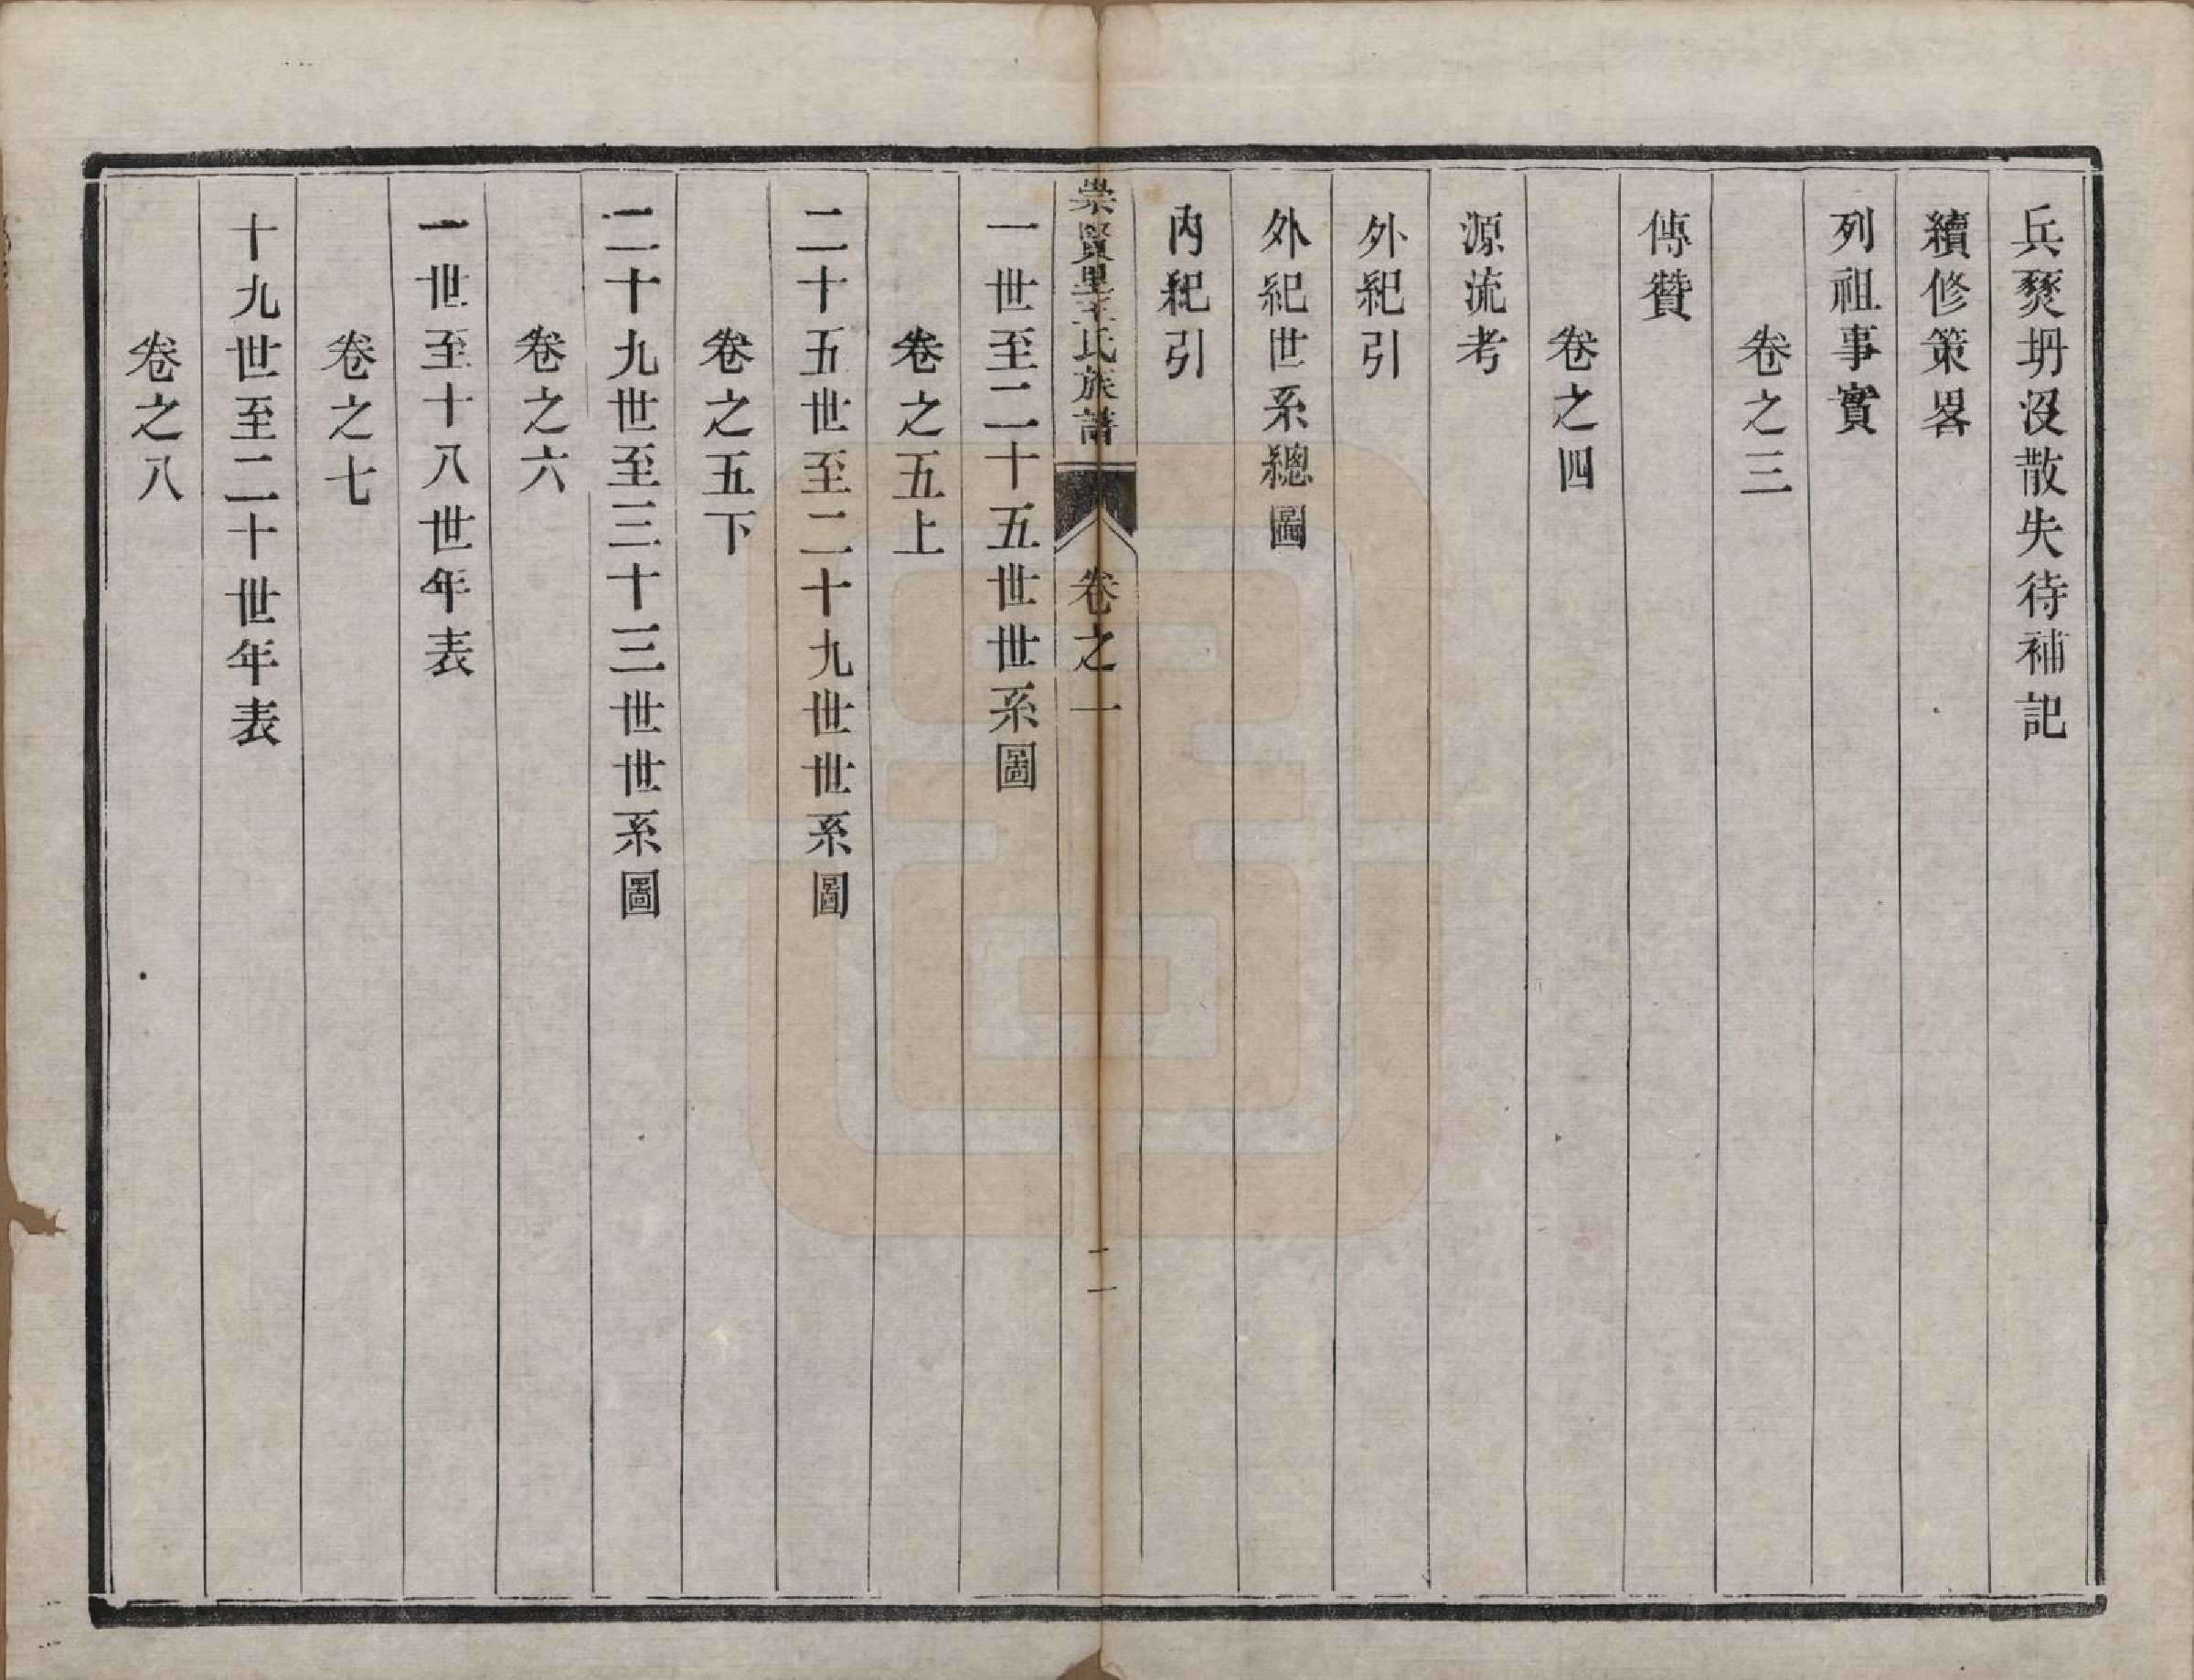 兵燹坍沒散失待補記
續修策畧
列祖事實
卷之三
傳贊
卷之四
源流考
外紀引
外紀世系總圖
內紀引
崇賢里王氏族譜
卷之一
二
一世至二十五世世系圖
卷之五上
二十五世至二十九世世系圖
卷之五下
二十九世至三十三世世系圖
卷之六
一世至十八世年表
卷之七
十九世至二十世年表
卷之八